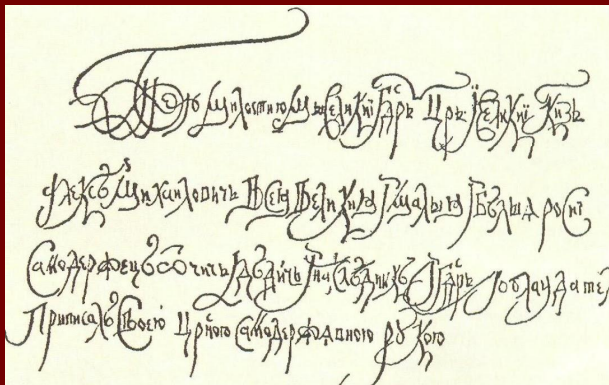 милостию мы великиї гдрсь црь ї великиї кнзь
алексѣй михаиловичь всея великия ї малыя ї бѣлыя росиї
самодержецъ отчичь ї дѣдичь ї наслѣдникъ ї гдрсь ї обладател
приписалъ своею црскою самодержавною рукою